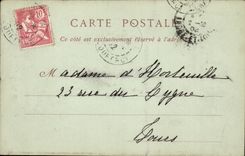 CARTE POSTALE
Ce côté est exclusivement réservé à l'adresse
Madame d'Horteville
23 rue du Cygne
Tours